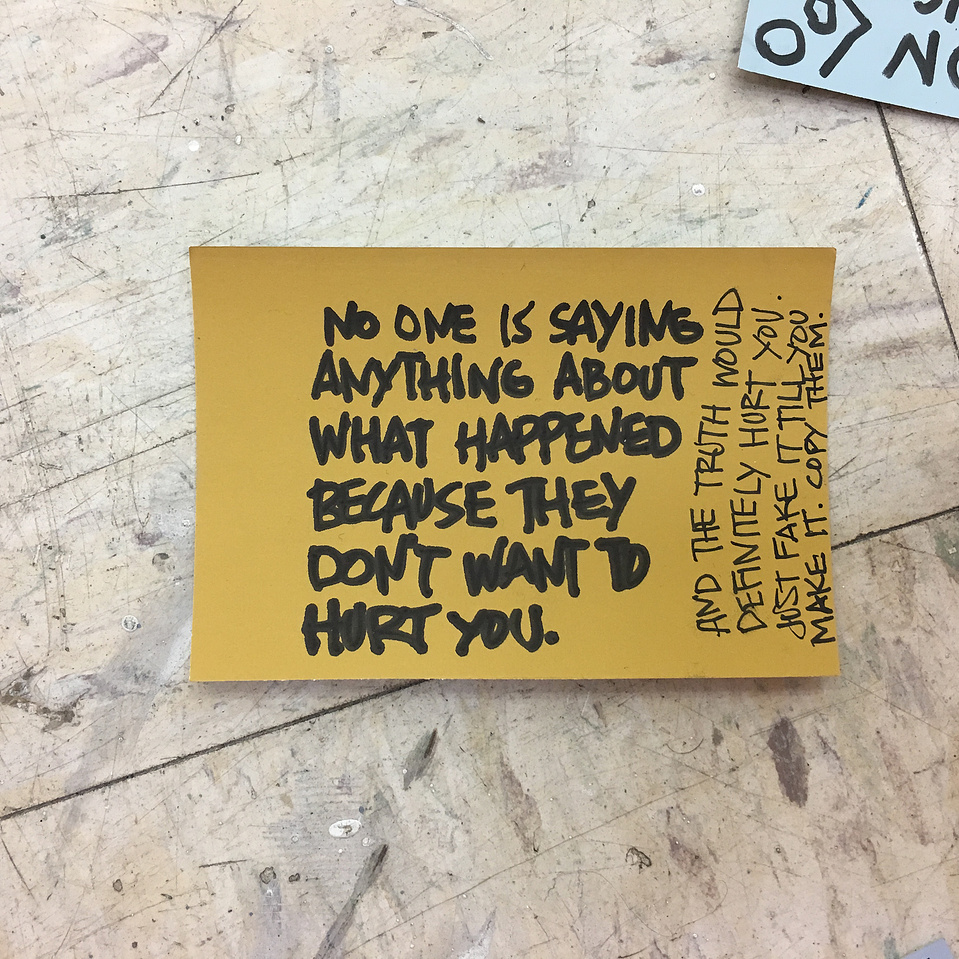 NO ONE IS SAYING
ANYTHING ABOUT
WHAT HAPPENED
BECAUSE THEY
DON'T WANT TO
HURT YOU.
AND THE TRUTH WOULD
DEFINITELY HURT YOU.
JUST FAKE IT TILL YOU
MAKE IT. COPY THEM.